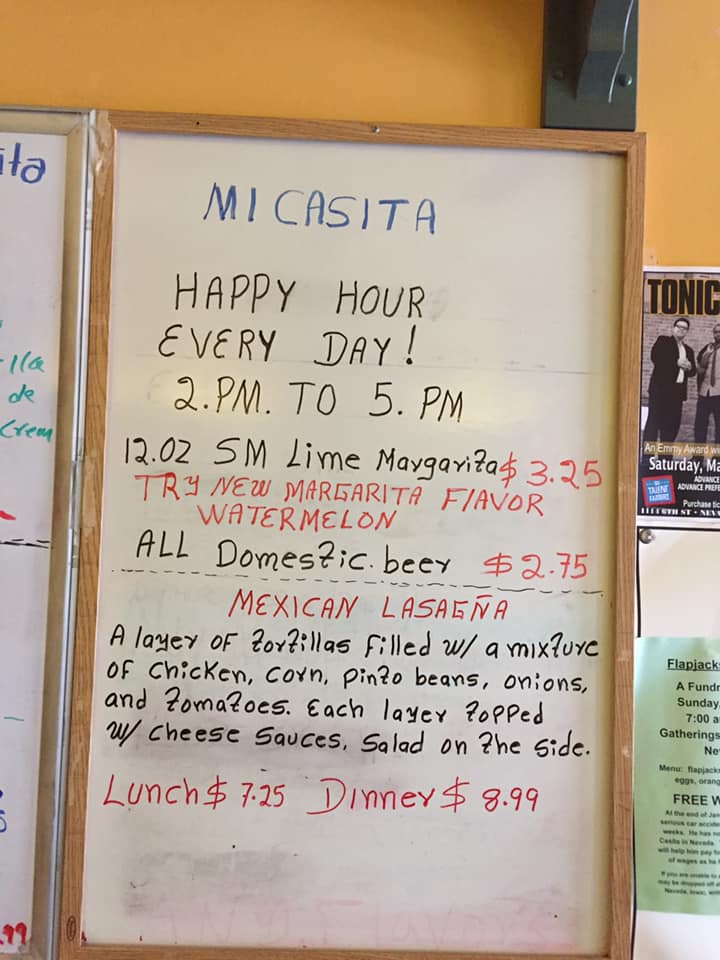 ita
lla
de
Crem
.99
MI CASITA
HAPPY HOUR
EVERY DAY!
2.PM. TO 5. PM
12.OZ SM Lime Margarita $ 3.25
TRY NEW MARGARITA FlAVOR
WATERMELON
ALL Domestic. beer $ 2.75
MEXICAN LASAGÑA
A layer OF tortillas Filled w/ a mixture
OF Chicken, Corn, pinto beans, onions,
and tomatoes. Each layer topped
w/ cheese sauces, Salad on the side.
Lunch $ 7.25 Dinner $ 8.99
TONIC
An Emmy Award wi
Saturday, Ma
ADVANCE
ADVANCE PREF
TALENT
Purchase tic
Flapjack
A Fundr
Sunday,
7:00 a
Gatherings
Ne
Menu: flapjacks
eggs, orang
FREE W
At the end of Jan
serious car accide
weeks. He has no
Casita in Nevada.
will help him pay fo
of wages as he
If you are unable to
may be dropped off a
Nevada, Iowa, with